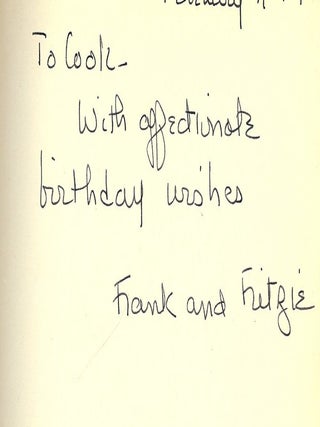 To Cook-
With affectionate
birthday wishes
Frank and Fritzie